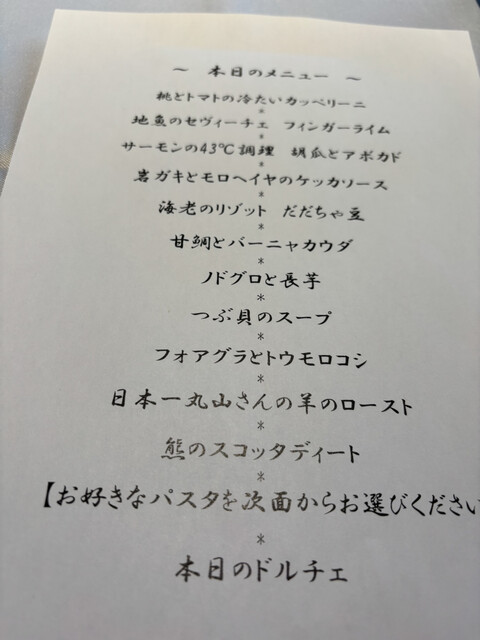 ～ 本日のメニュー ～
桃とトマトの冷たいカッペリーニ
*
地魚のセヴィーチェ フィンガーライム
*
サーモンの43℃調理 胡瓜とアボカド
*
岩ガキとモロヘイヤのケッカソース
*
海老のリゾット だだちゃ豆
*
甘鯛とバーニャカウダ
*
ノドグロと長芋
*
つぶ貝のスープ
*
フォアグラとトウモロコシ
*
日本一丸山さんの羊のロースト
*
熊のスコッタディート
*
【お好きなパスタを次面からお選びください
*
本日のドルチェ